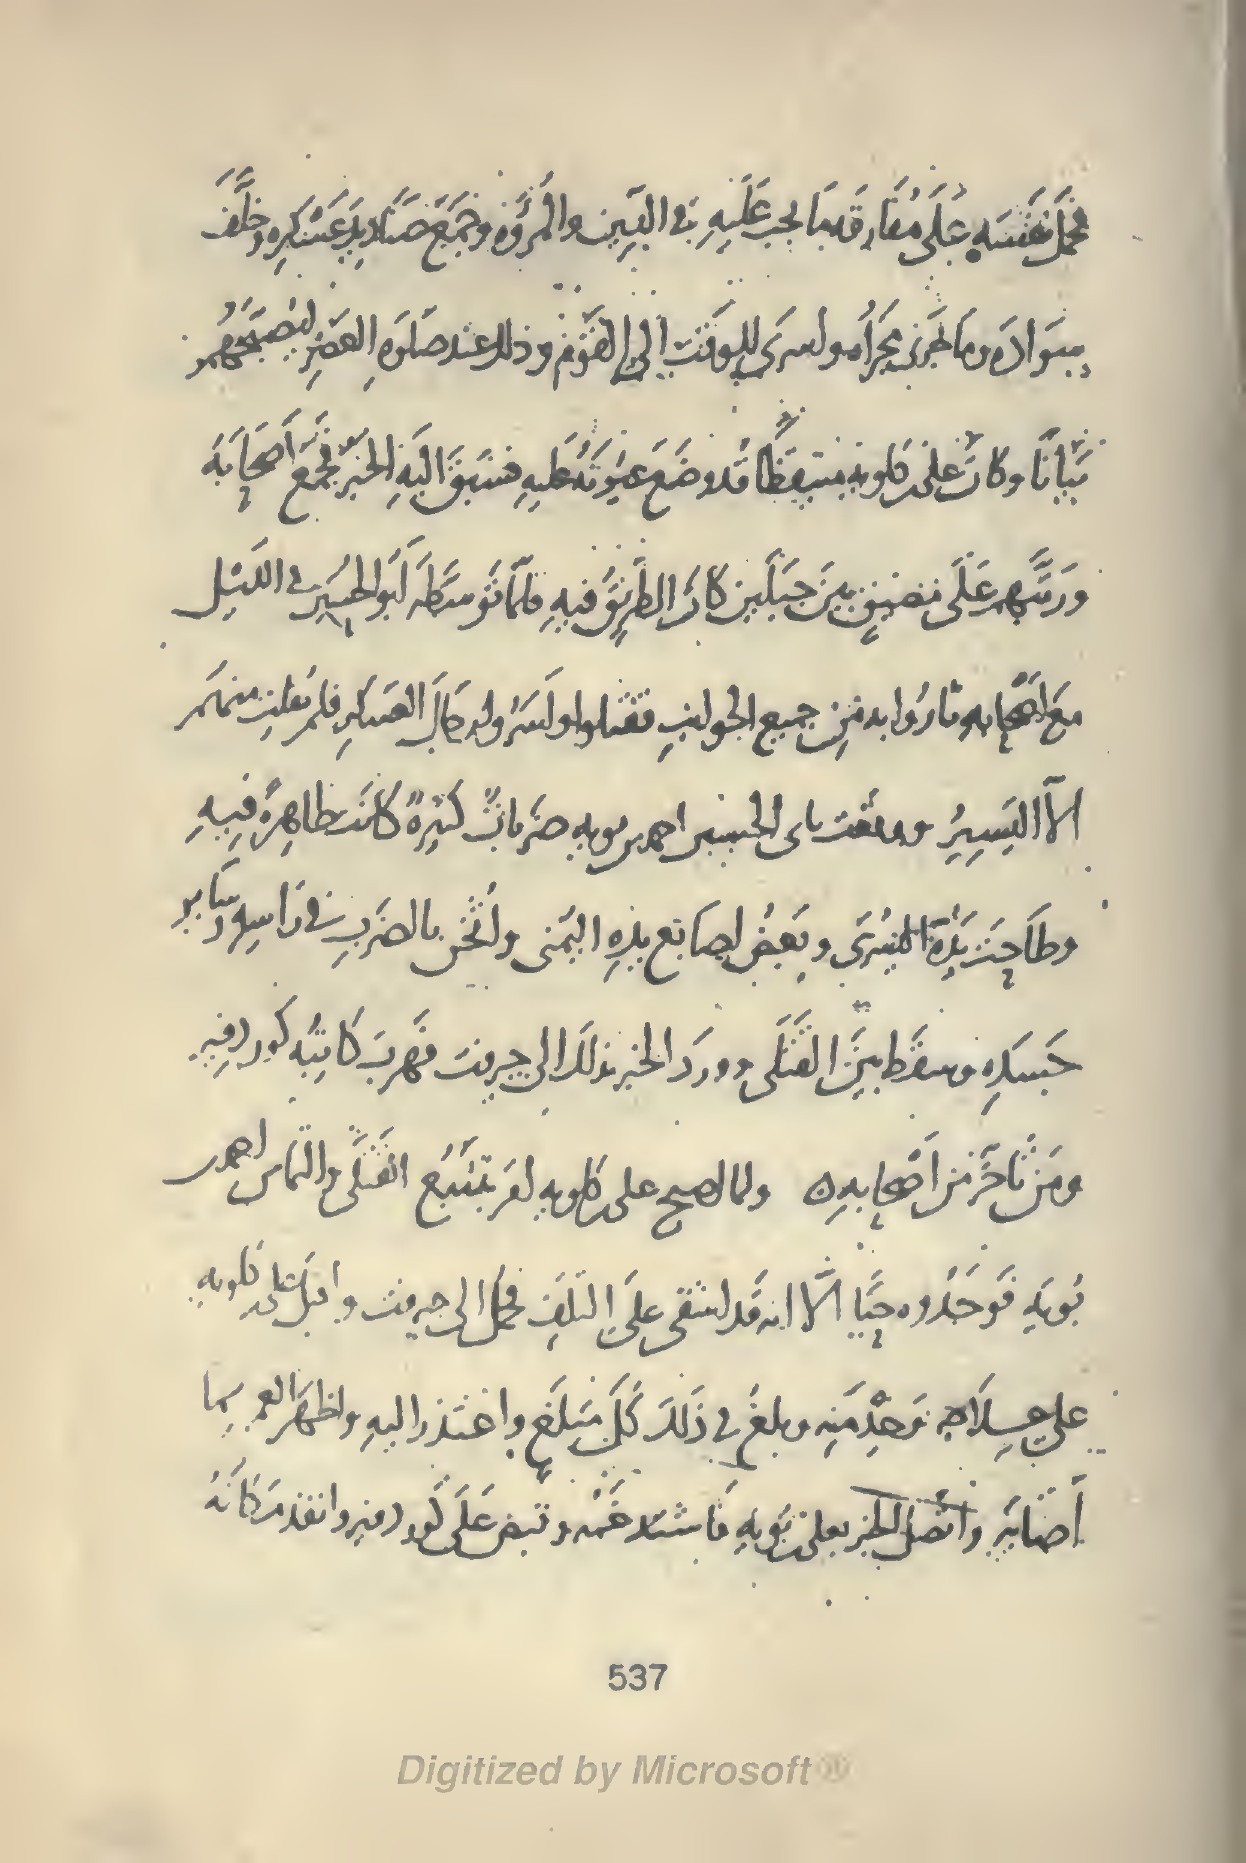 فحمل نفسه على مفارقة ما يجب عليه في الدين والمروة وجمع صناديد عسكره وخلف
سواده وما جرى مجراه واسرى للوقت الى القوم وذلك عند صلوة العصر ليصبحهم
بياتا وكان على كلويه متيقظا قد وضع عيونه عليه فسبق اليه الخبر فجمع اصحابه
ورتبهم على مضيق بين جبلين كان الطريق فيه فلما توسطه ابو الحسين في الليل
مع اصحابه ثاروا به من جميع الجوانب فقتلوا واسروا العسكر فلم يفلت منهم
الا اليسير ووقعت بابى الحسين احمد بن بويه ضربات كثيرة كانت ظاهرة فيه
وطاحت يده اليسرى وبعض اصابع يده اليمنى واثخن بالضرب في راسه وسائر
جسده وسقط بين القتلى وورد الخبر بذلك الى جيرفت فهرب كاتبه كوردفير
ومن تاخر من اصحابه ولما اصبح على كلويه امر بتتبع القتلى والتماس احمد بن
بويه فوجدوه حيا الا انه قد اشفى على التلف فحمل الى جيرفت واقبل على كلويه
على علاجه وخدمته وبلغ في ذلك كل مبلغ واعتذر اليه واظهر الغم بما
اصابه واتصل الخبر بعلى بن بويه فاشتد غمه وقبض على كوردفير وانفذ مكانه
537
Digitized by Microsoft®